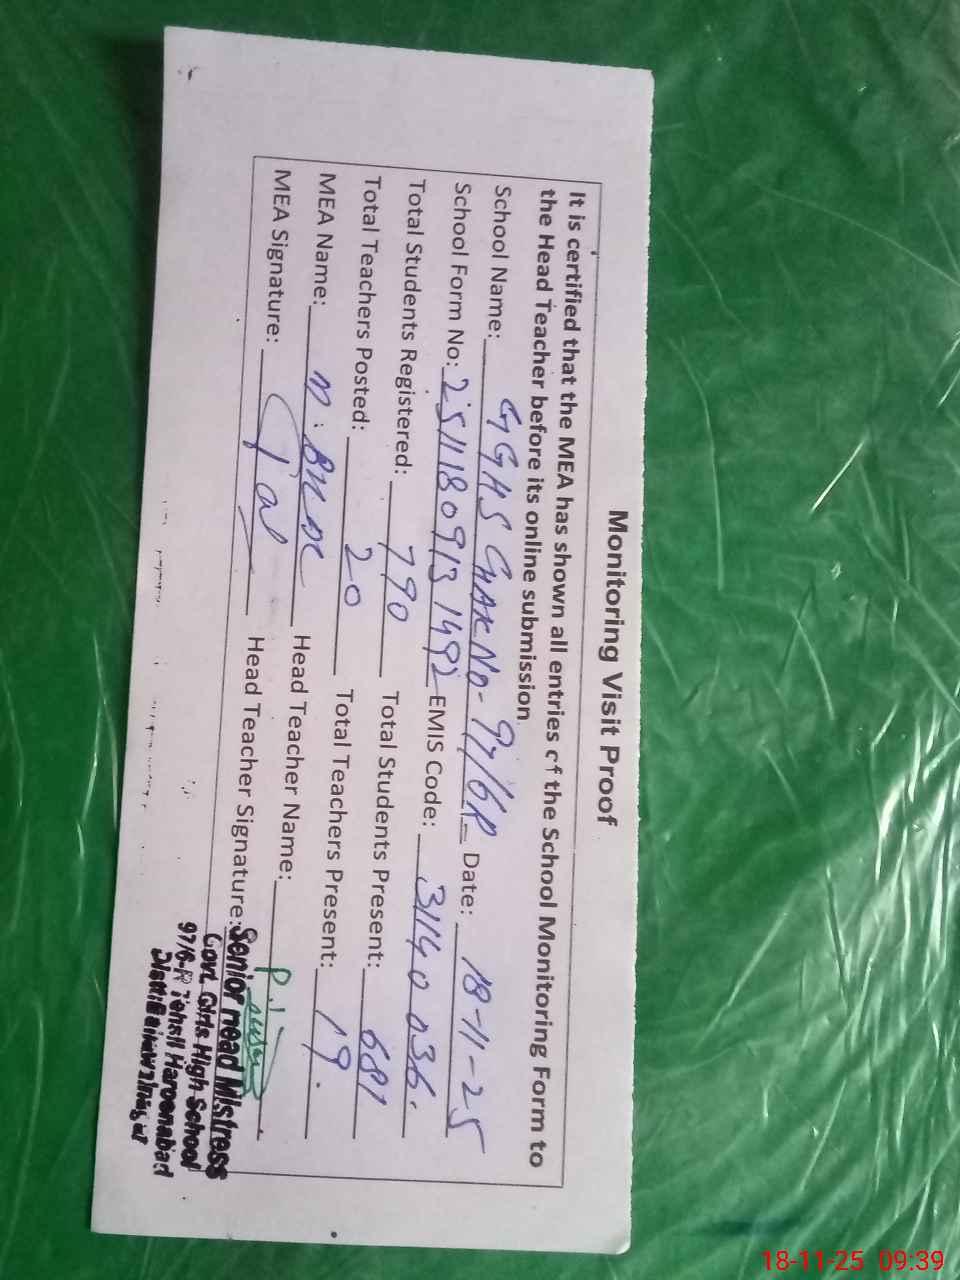 Monitoring Visit Proof
It is certified that the MEA has shown all entries of the School Monitoring Form to
the Head Teacher before its online submission
School Name: GGHS CHAK No- 97/6R Date: 18-11-25
School Form No: 25111809131492 EMIS Code: 31140036.
Total Students Registered: 790 Total Students Present: 681
Total Teachers Posted: 20 Total Teachers Present: 19.
MEA Name: Head Teacher Name:
MEA Signature: Head Teacher Signature:
Senior Head Mistress
Govt. Girls High School
97/6-R Tehsil Haroonabad
Distt: Bahawalnagar
18-11-25 09:39